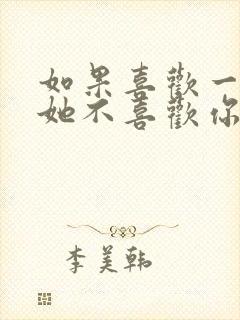 如果喜歡一
她不喜歡你
李美韩